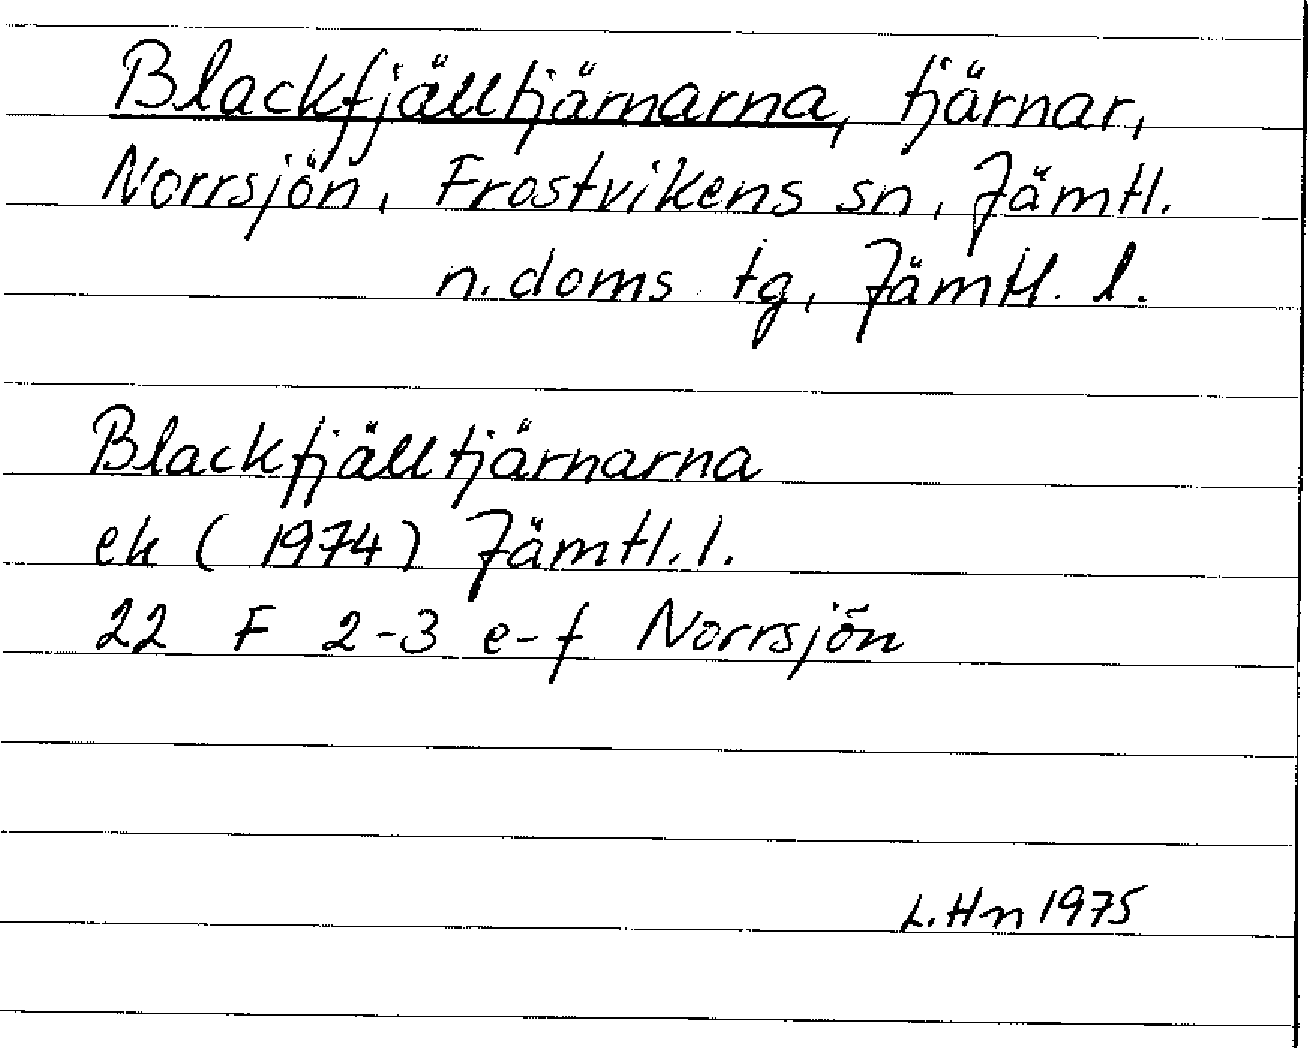 Blackfjälltjärnarna, tjärnar,
Norrsjön, Frostvikens sn, Jämtl.
n. doms tg, Jämtl. l.
Blackfjälltjärnarna
ek (1974) Jämtl. l.
22 F 2-3 e-f Norrsjön
L. Hn 1975